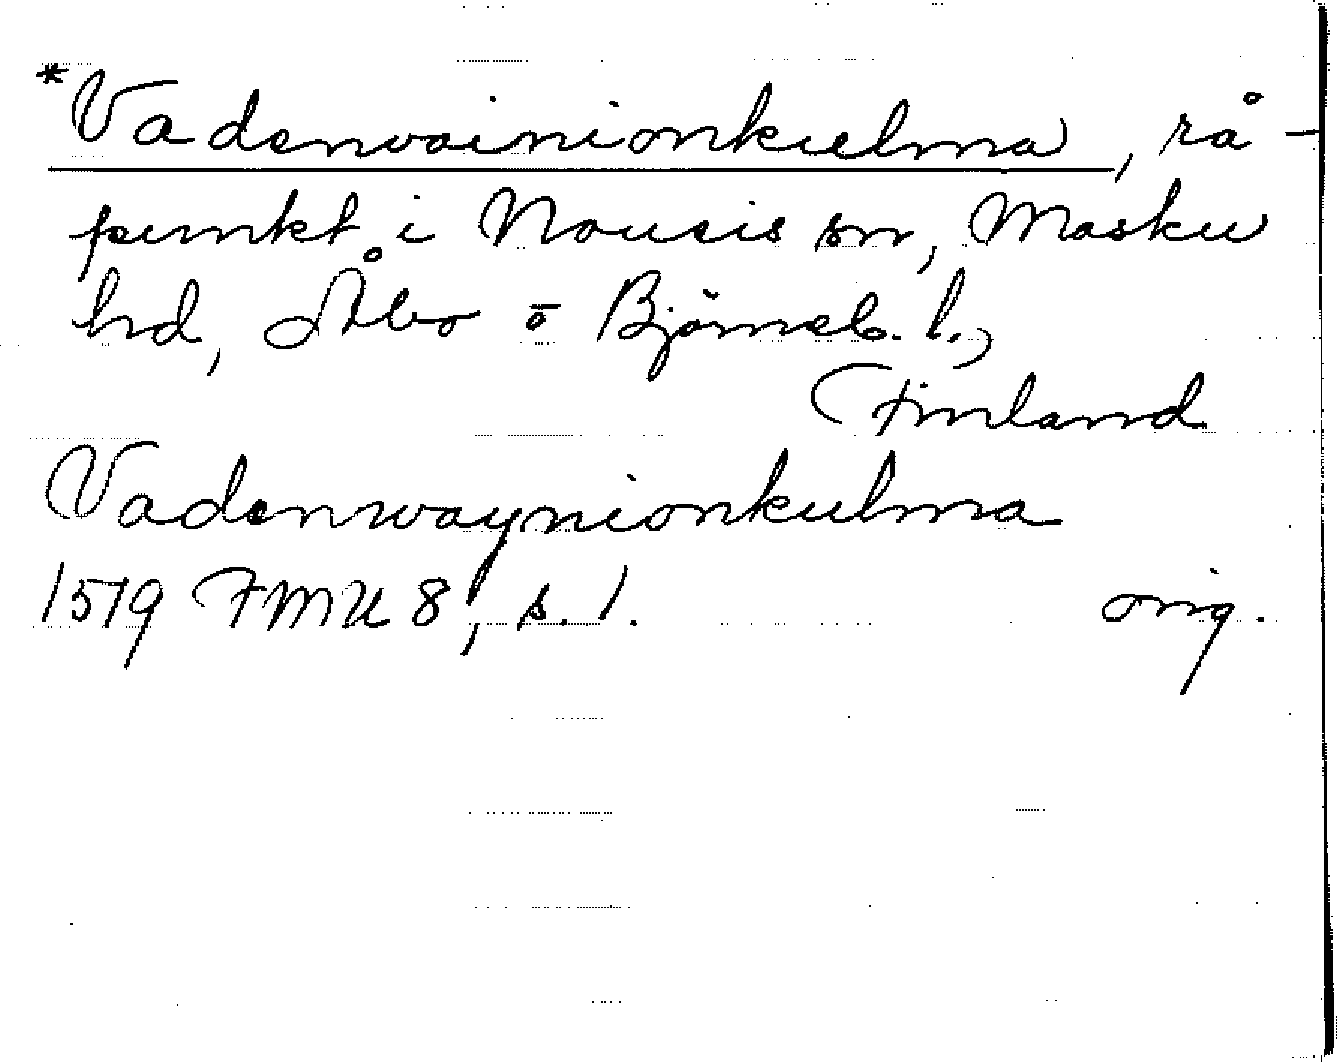 *Vadenvainionkulma, rå-
punkt i Nousis sn, Masku
hd, Åbo o Björneb. l.,
Finland
Vadenwaynionkulma
1579 FMU 8, s. 1. orig.